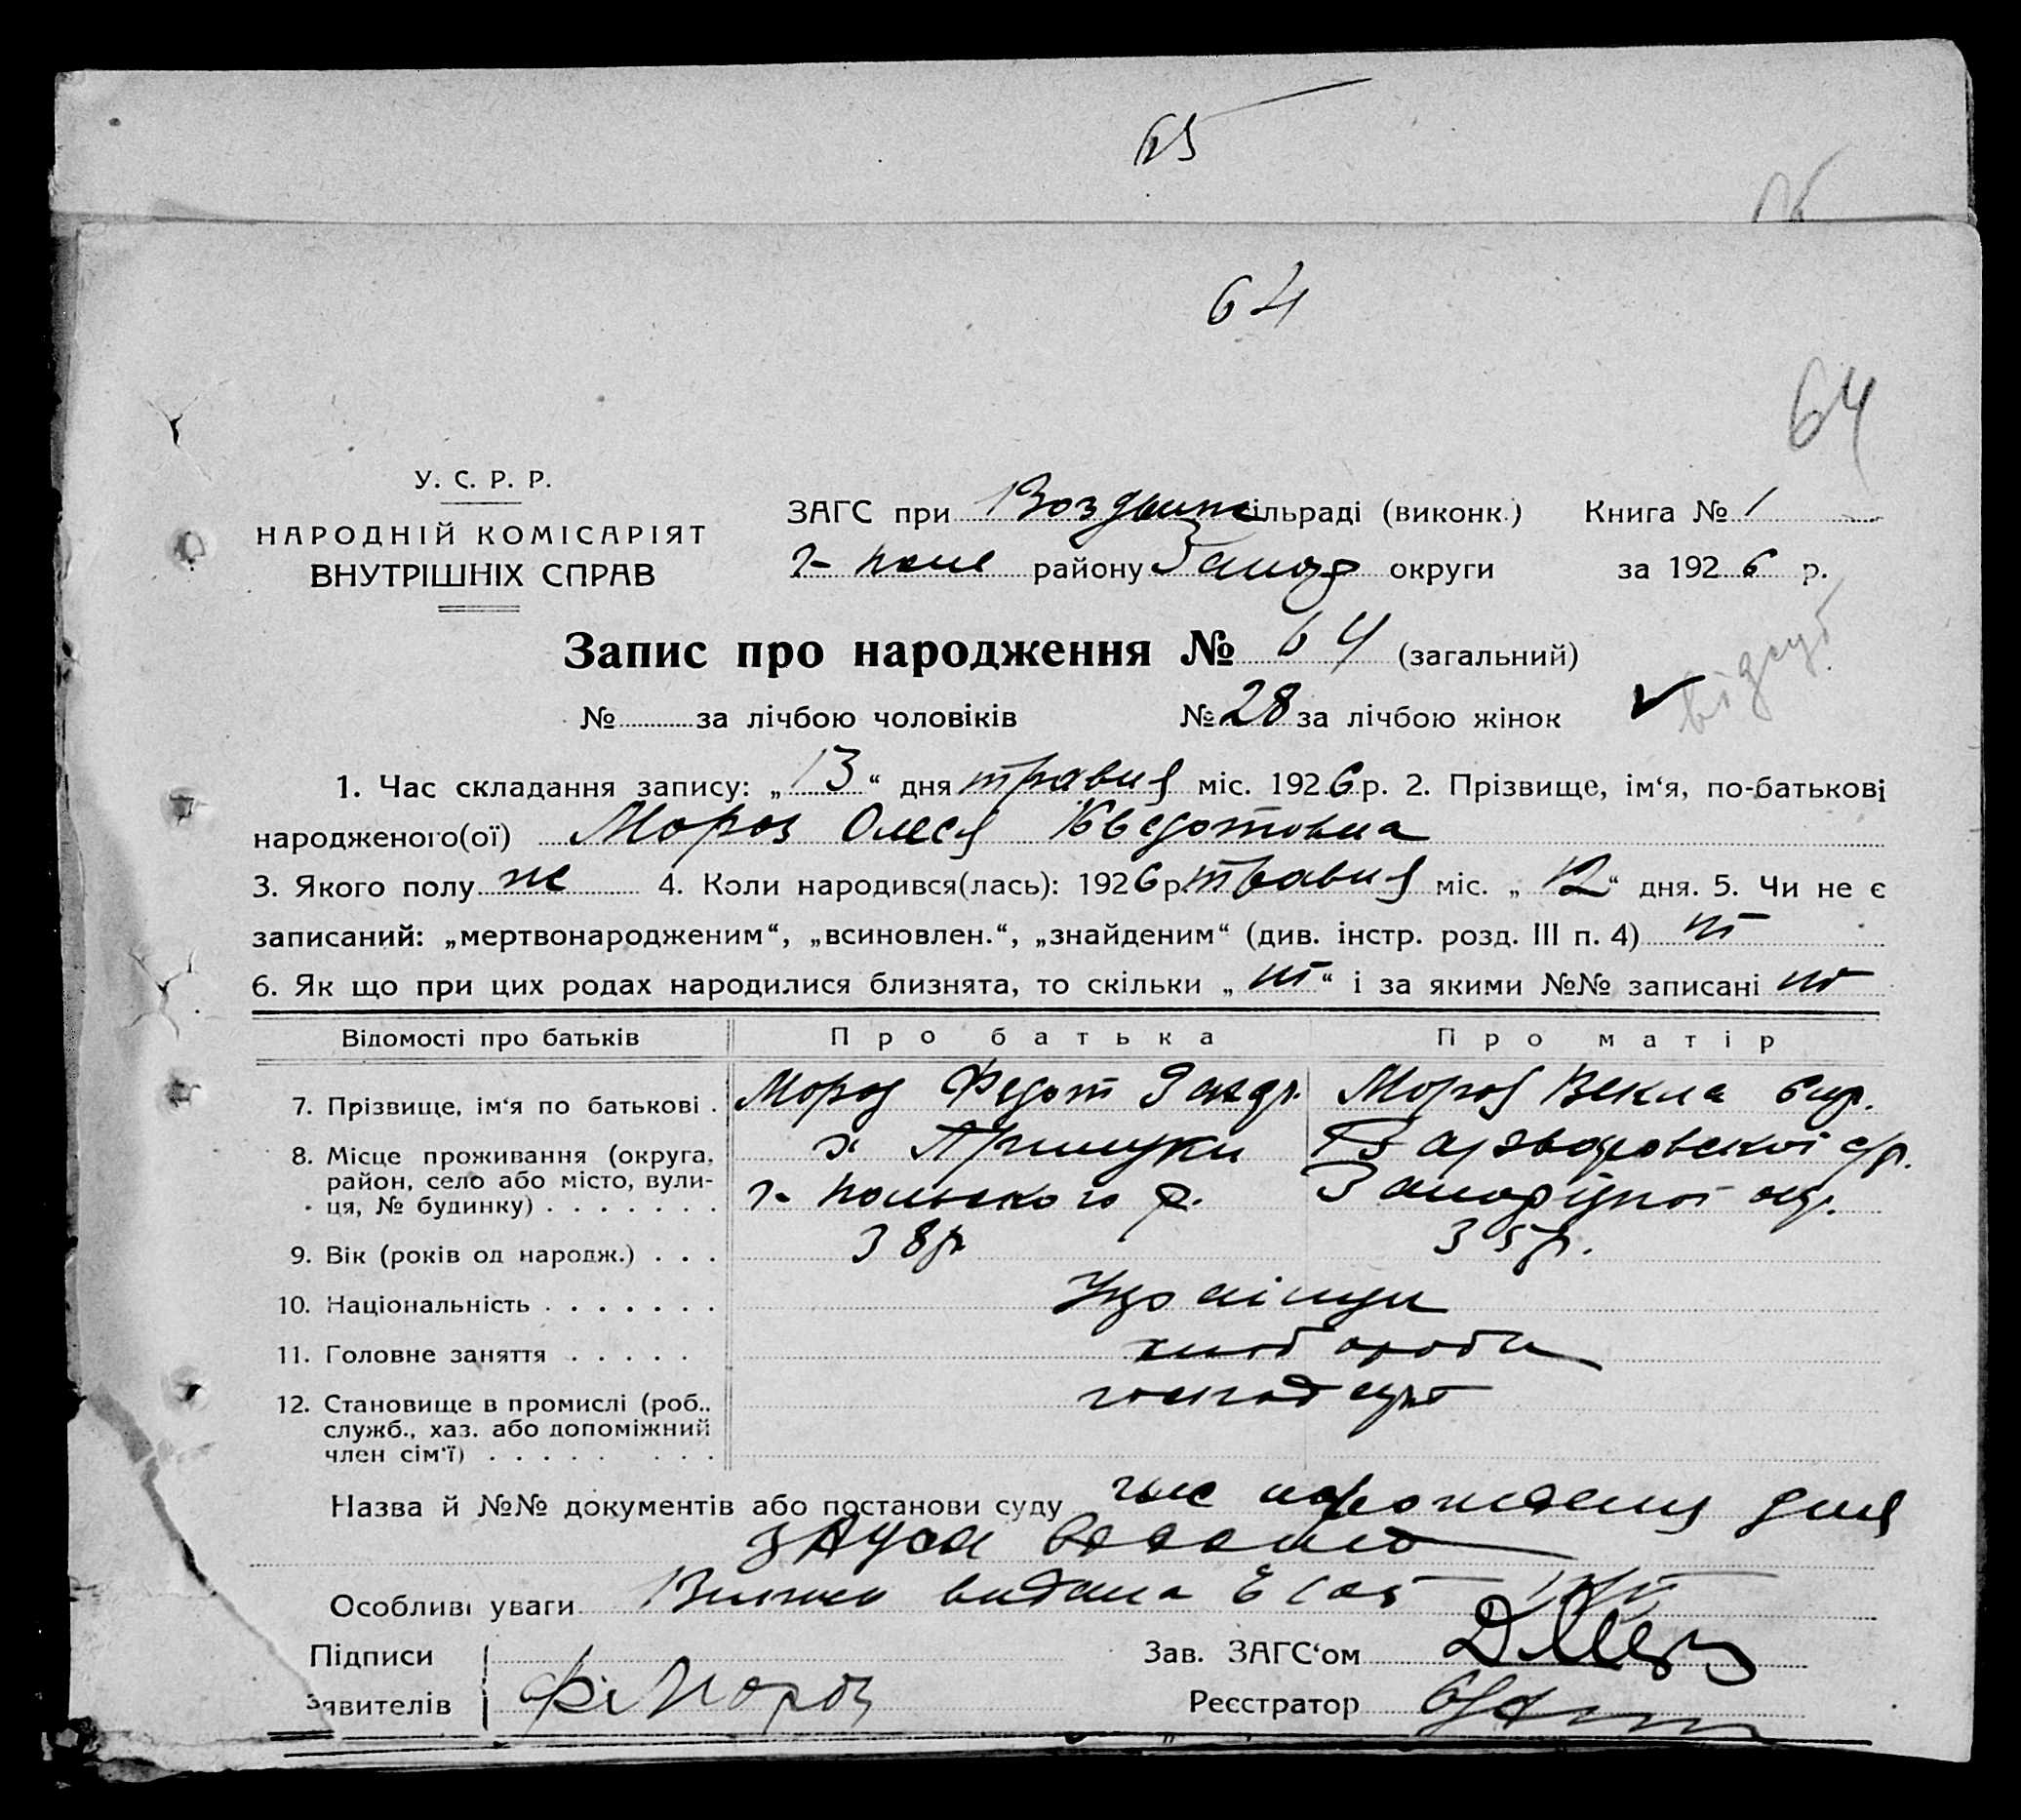 65
64
64
У. С. Р. Р.
НАРОДНІЙ КОМІСАРІЯТ
ВНУТРІШНІХ СПРАВ
ЗАГС при Воздвиж сільраді (виконк.) Книга № 1
г-поле району Запор округи за 1926 р.
Запис про народження № 64 (загальний)
відсут
№ за лічбою чоловіків № 28 за лічбою жінок
1. Час складання запису: „13“ дня травня міс. 1926 р. 2. Прізвище, ім‘я, по-батькові
народженого(ої) Мороз Олеся Хведотовна
3. Якого полу ж 4. Коли народився(лась): 1926 р травня міс. „12“ дня. 5. Чи не є
записаний: „мертвонародженим“, „всиновлен.“, „знайденим“ (див. інстр. розд. III п. 4) ні
6. Як що при цих родах народилися близнята, то скільки „ні“ і за якими №№ записані ні
Відомості про батьків Про батька Про матір
7. Прізвище, ім‘я по батькові . Мороз Федот Мороз Векла
8. Місце проживання (округа, х Прилуки
район, село або місто, вули-
ця, № будинку) . . . . . . . г-польского р. Запоріцкої окр.
9. Вік (років од народж.) . . . 38 р 35 р.
10. Національність . . . . . . . Українци
11. Головне заняття . . . . . хлібороби
12. Становище в промислі (роб.,
служб., хаз. або допоміжний
член сім‘ї) . . . . . . . .
Назва й №№ документів або постанови суду
Особливі уваги видана
Підписи Зав. ЗАГС‘ом
Заявителів Ф. Мороз Реєстратор